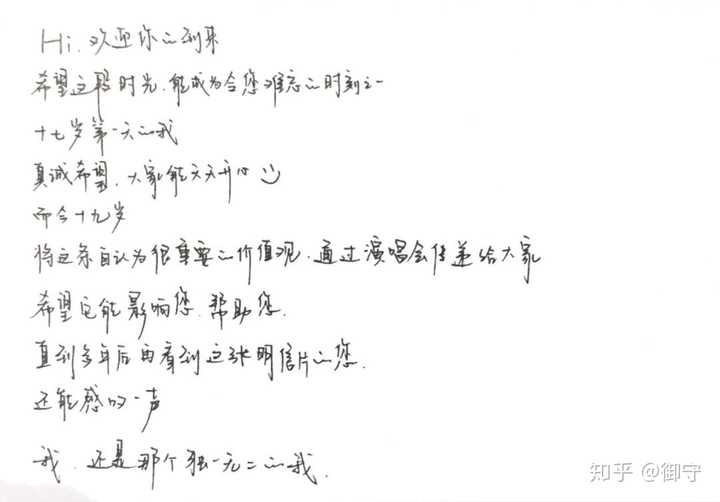 Hi. 欢迎你的到来
希望这段时光.能成为令您难忘的时刻之一
十七岁第一天的我
真诚希望.大家能天天开心
而今十九岁
将这条自认为很重要的价值观.通过演唱会传递给大家
希望它能影响您.帮助您.
直到多年后再看到这张明信片的您.
还能感叹一声
我.还是那个独一无二的我.
知乎 @御守